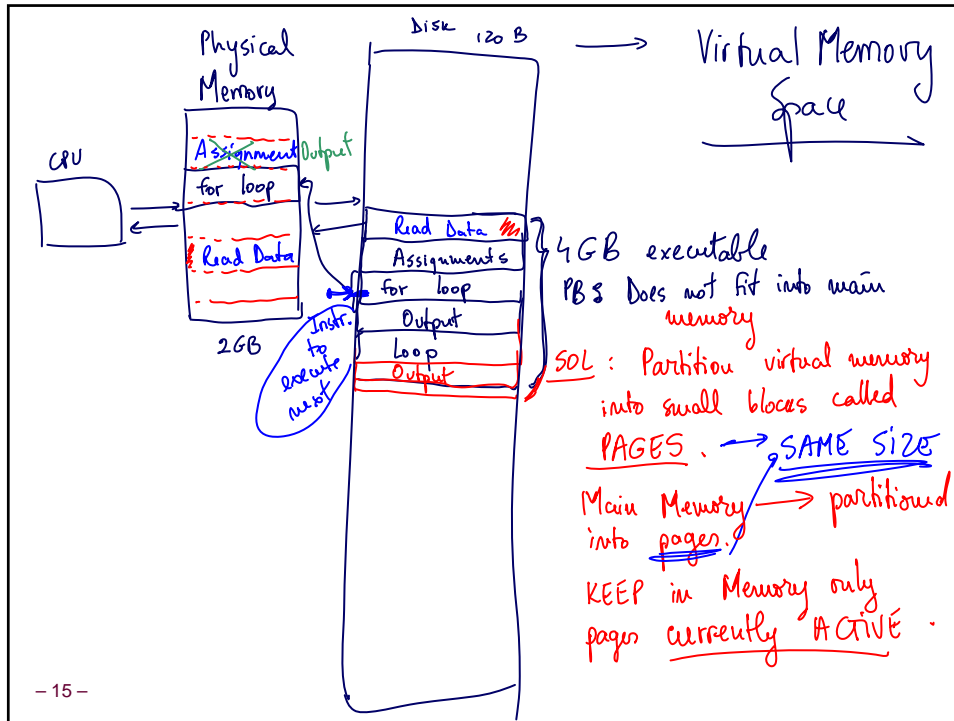 Physical
Memory
CPU
Assignment Output
for loop
Read Data
2GB
Disk 120 B
Read Data
Assignments
for loop
Output
Loop
Output
Instr.
to
execute
next
→ Virtual Memory
Space
4GB executable
PB: Does not fit into main
memory
SOL : Partition virtual memory
into small blocks called
PAGES. → SAME SIZE
Main Memory → partitioned
into pages.
KEEP in Memory only
pages currently ACTIVE.
– 15 –